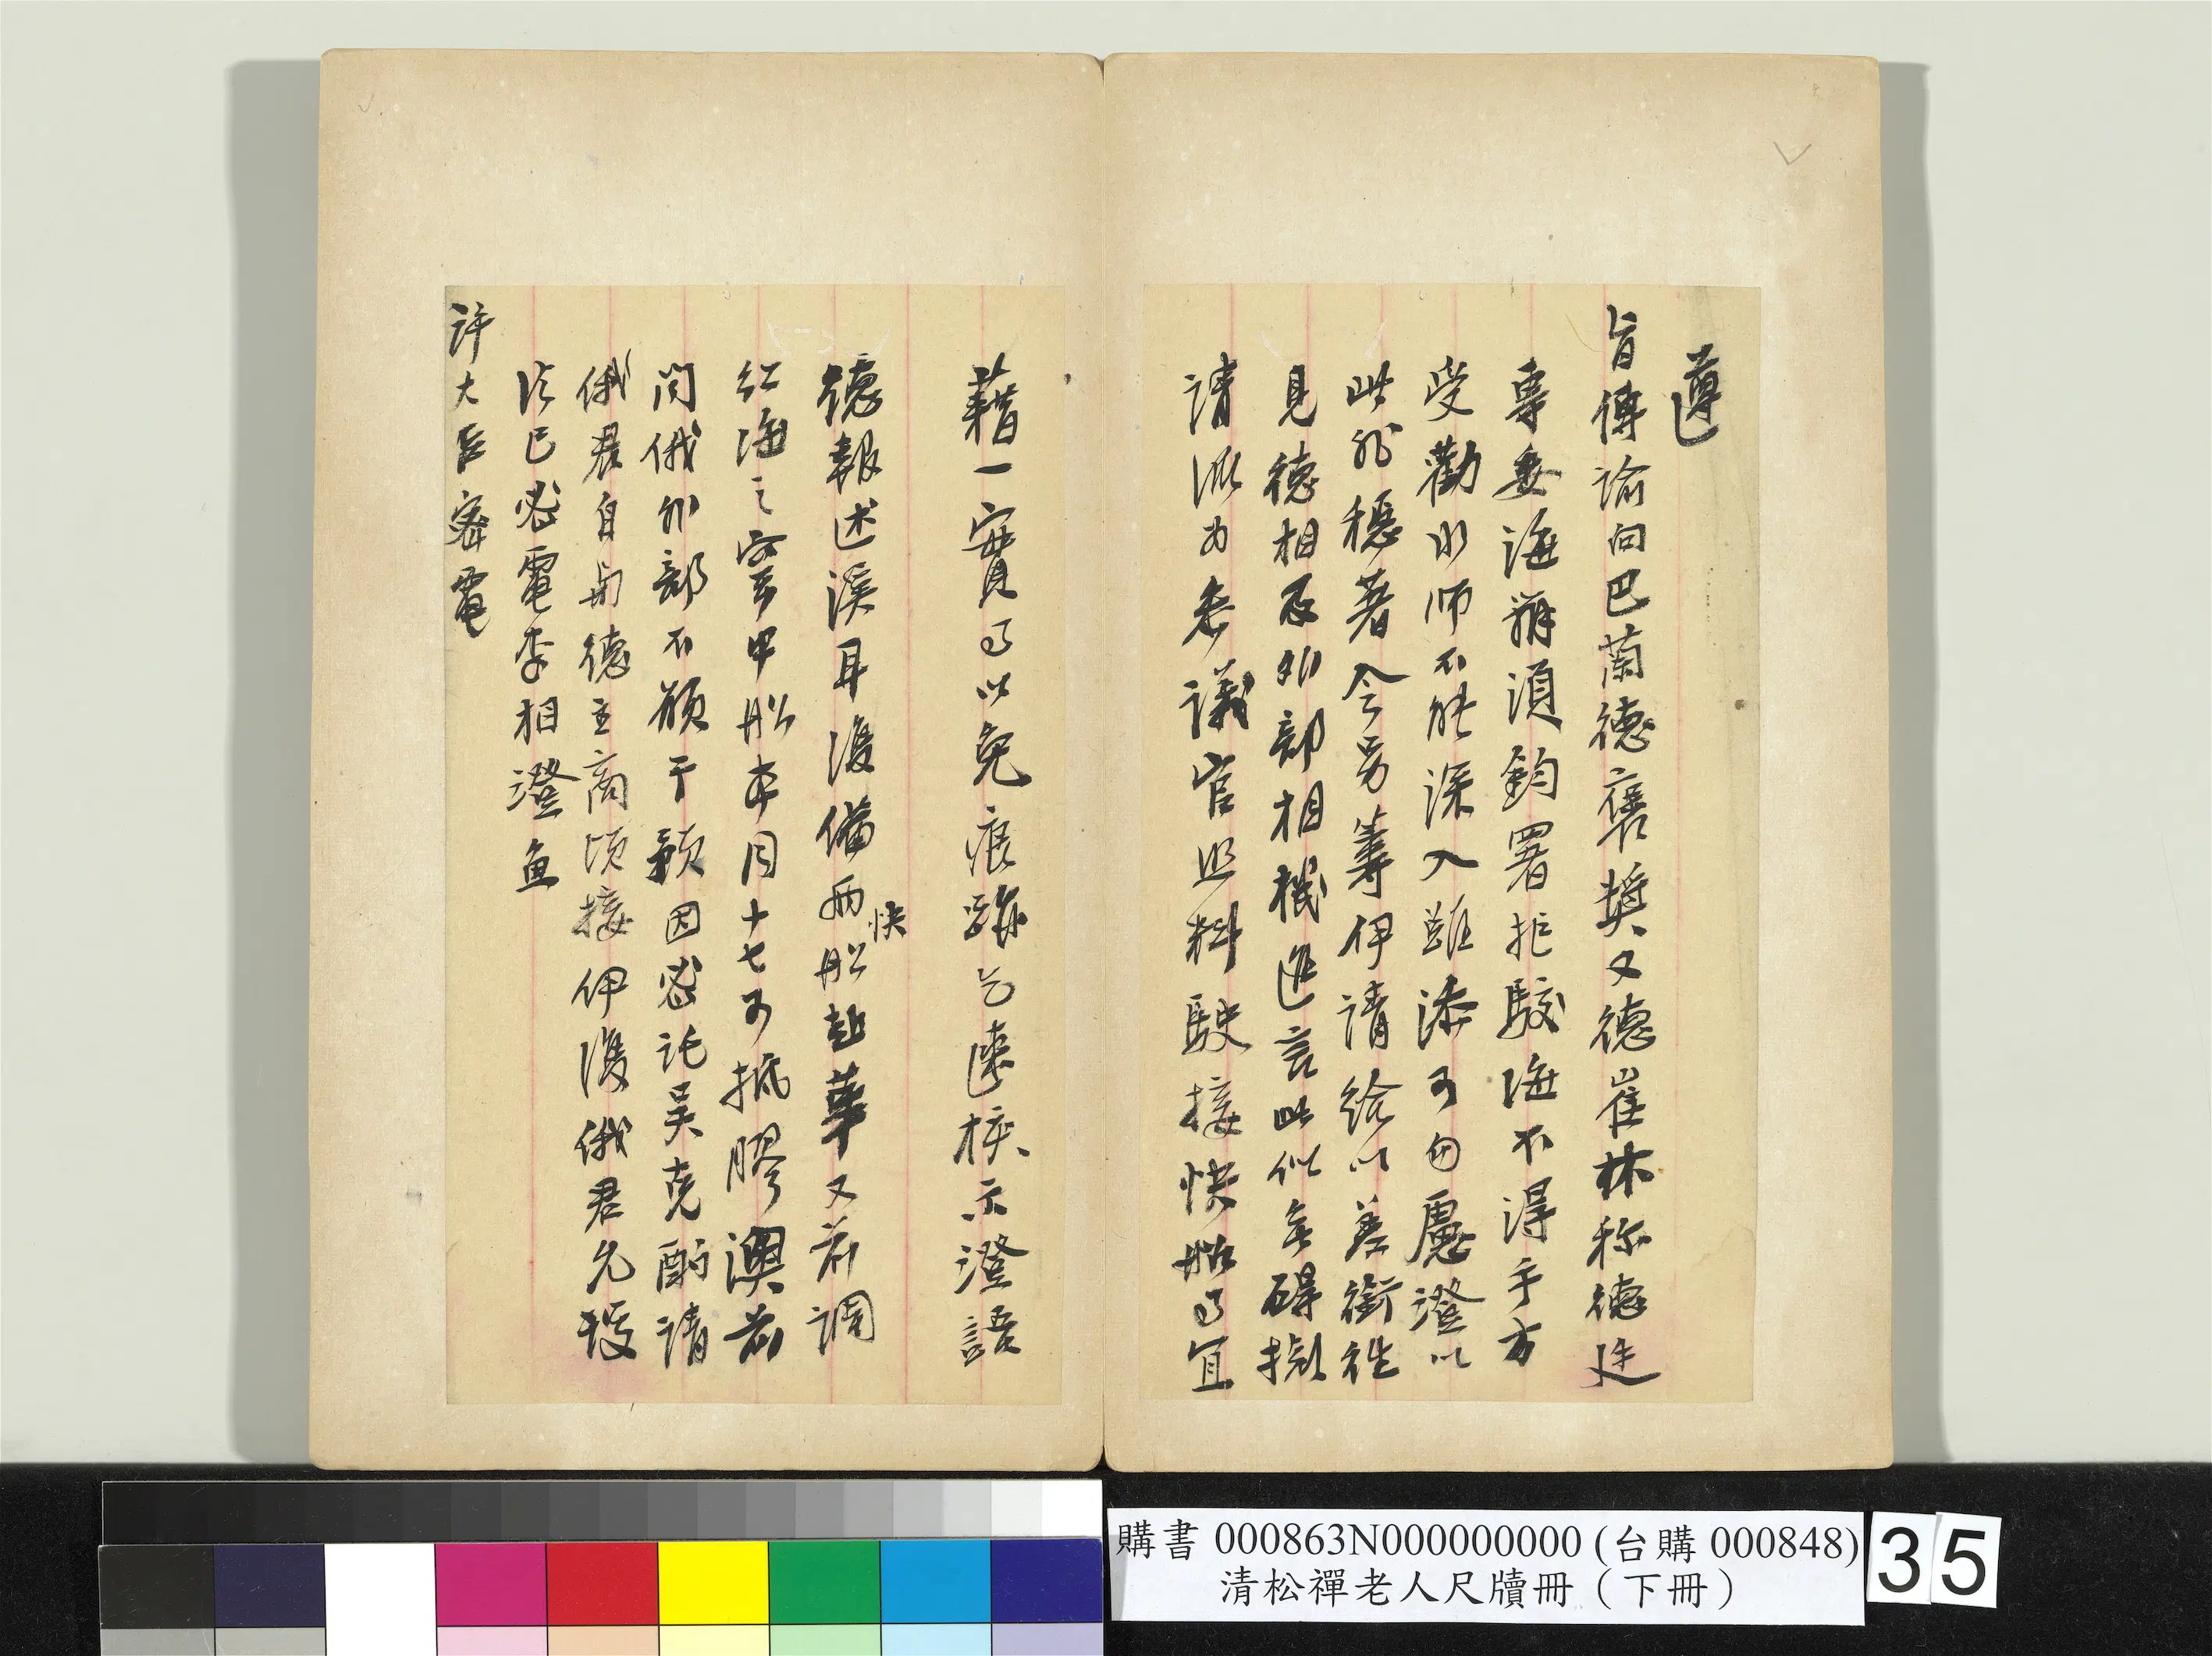 遵
旨傳諭向巴蘭德褒獎又德崔林称德廷
專要海
受勸水師不能深入雖添可勿慮澄以
此非穩著今另籌伊請給以差銜
見德相及外部相機進言此似無礙擬
請派为参議官照料駛接快船事宜
藉一實事以免痕跡乞速核示澄語
德報述溪耳復備兩快船赴華又前調
紅海之甲船本月十七可抵膠澳前
問俄外部不願干預因密託吳克酌請
俄君自与德主商頃接伊復俄君允
法已密電李相澄魚
許大臣密電
購書 000863N000000000 (台購 000848)
清松禪老人尺牘冊（下冊）
35